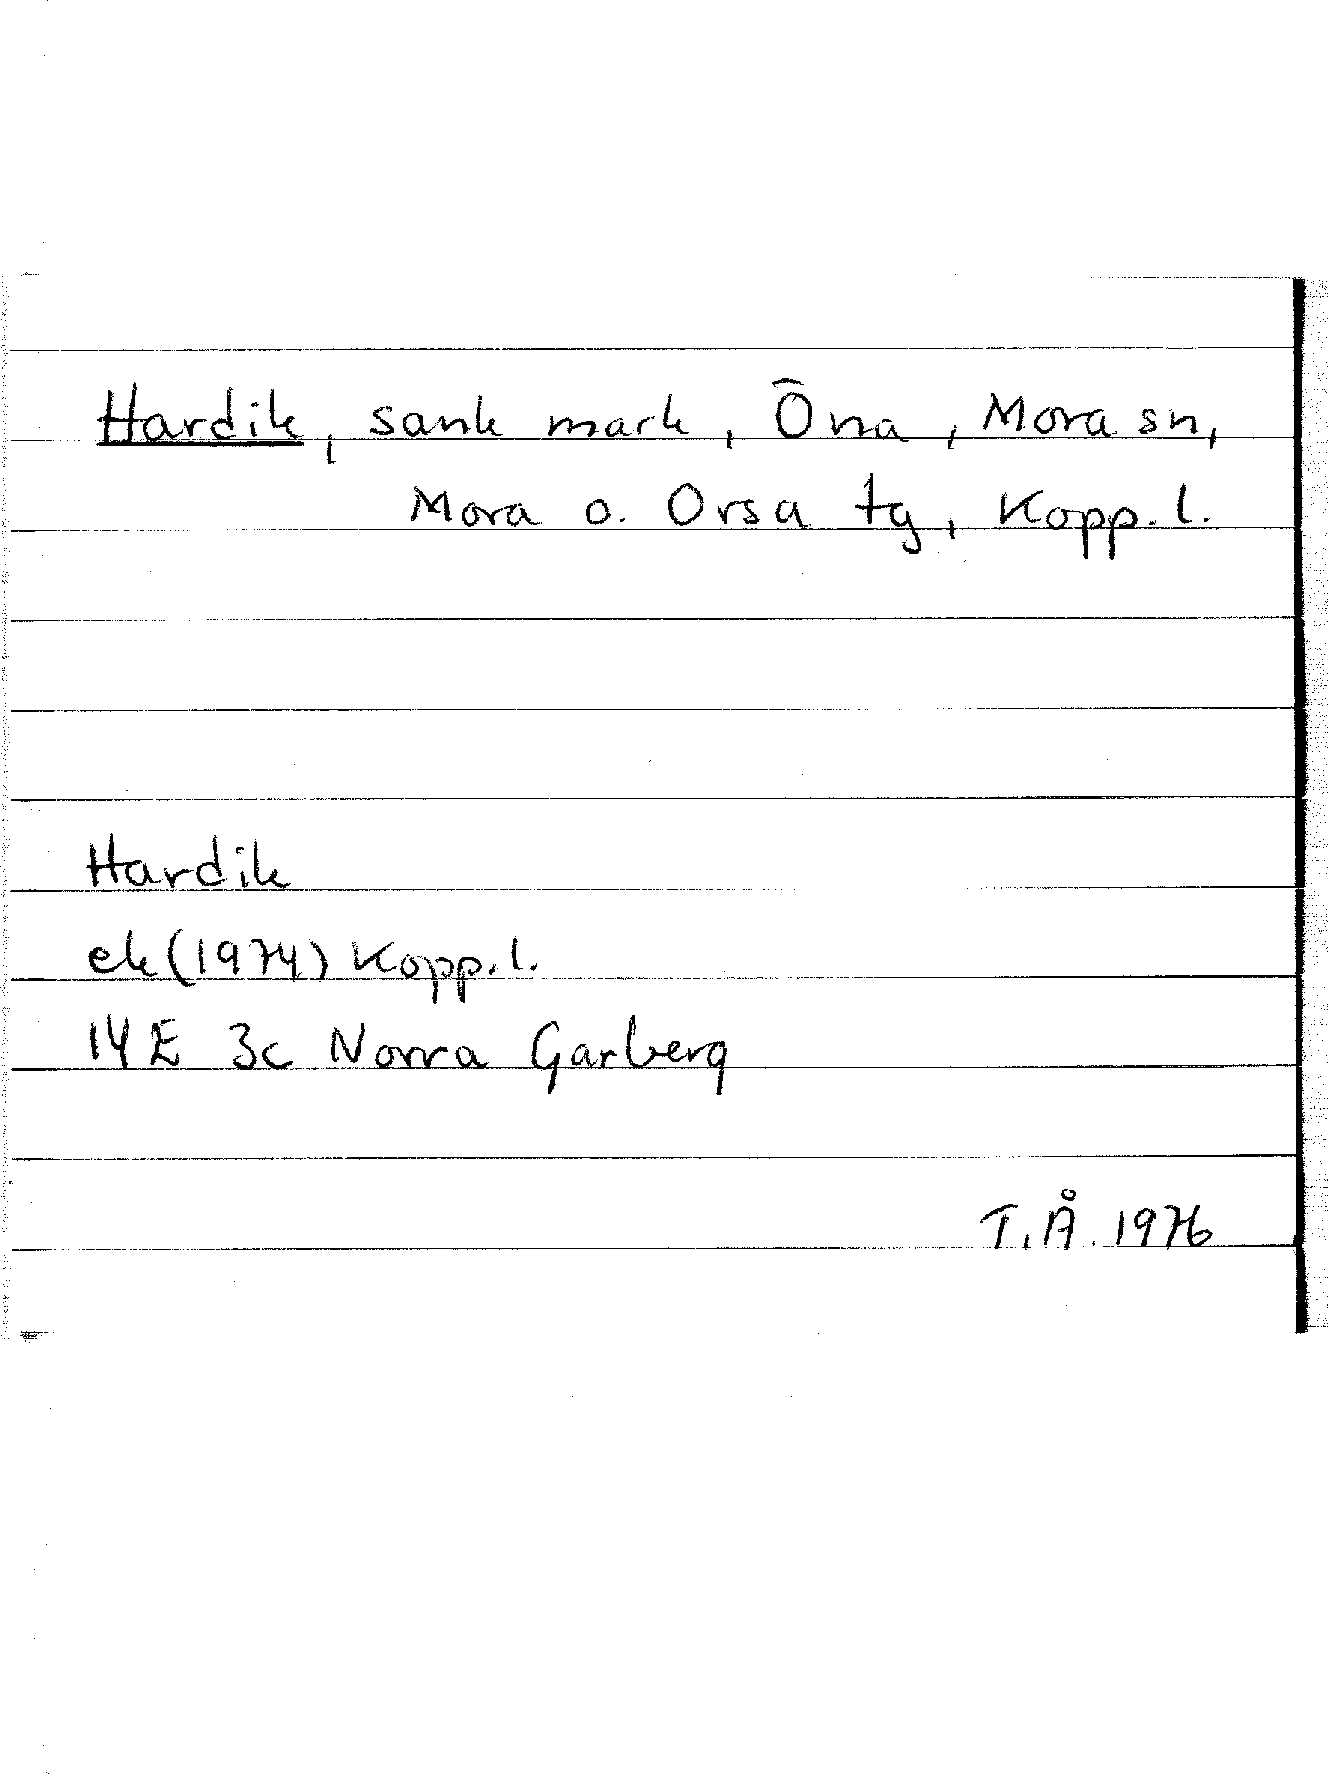 Hardik, sank mark, Öna, Mora sn,
Mora o. Orsa tg, Kopp. l.
Hardik
ek (1974) Kopp. l.
14 E 3c Norra Garberg
T. Å. 1976